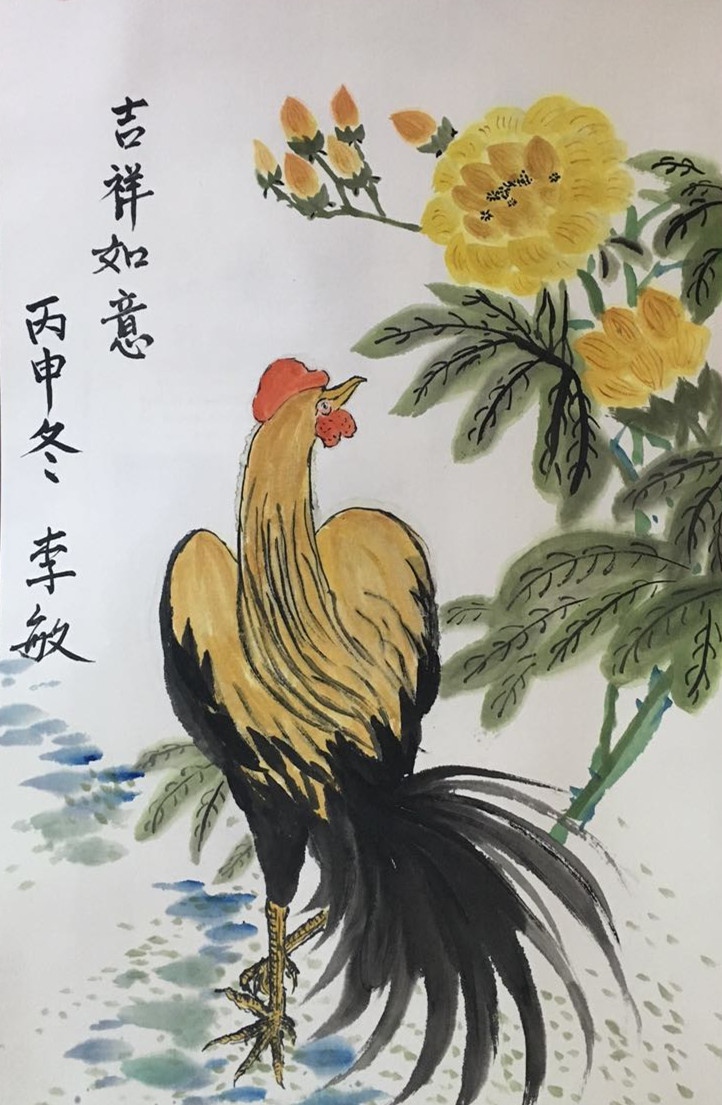 吉祥如意
丙申冬 李敏